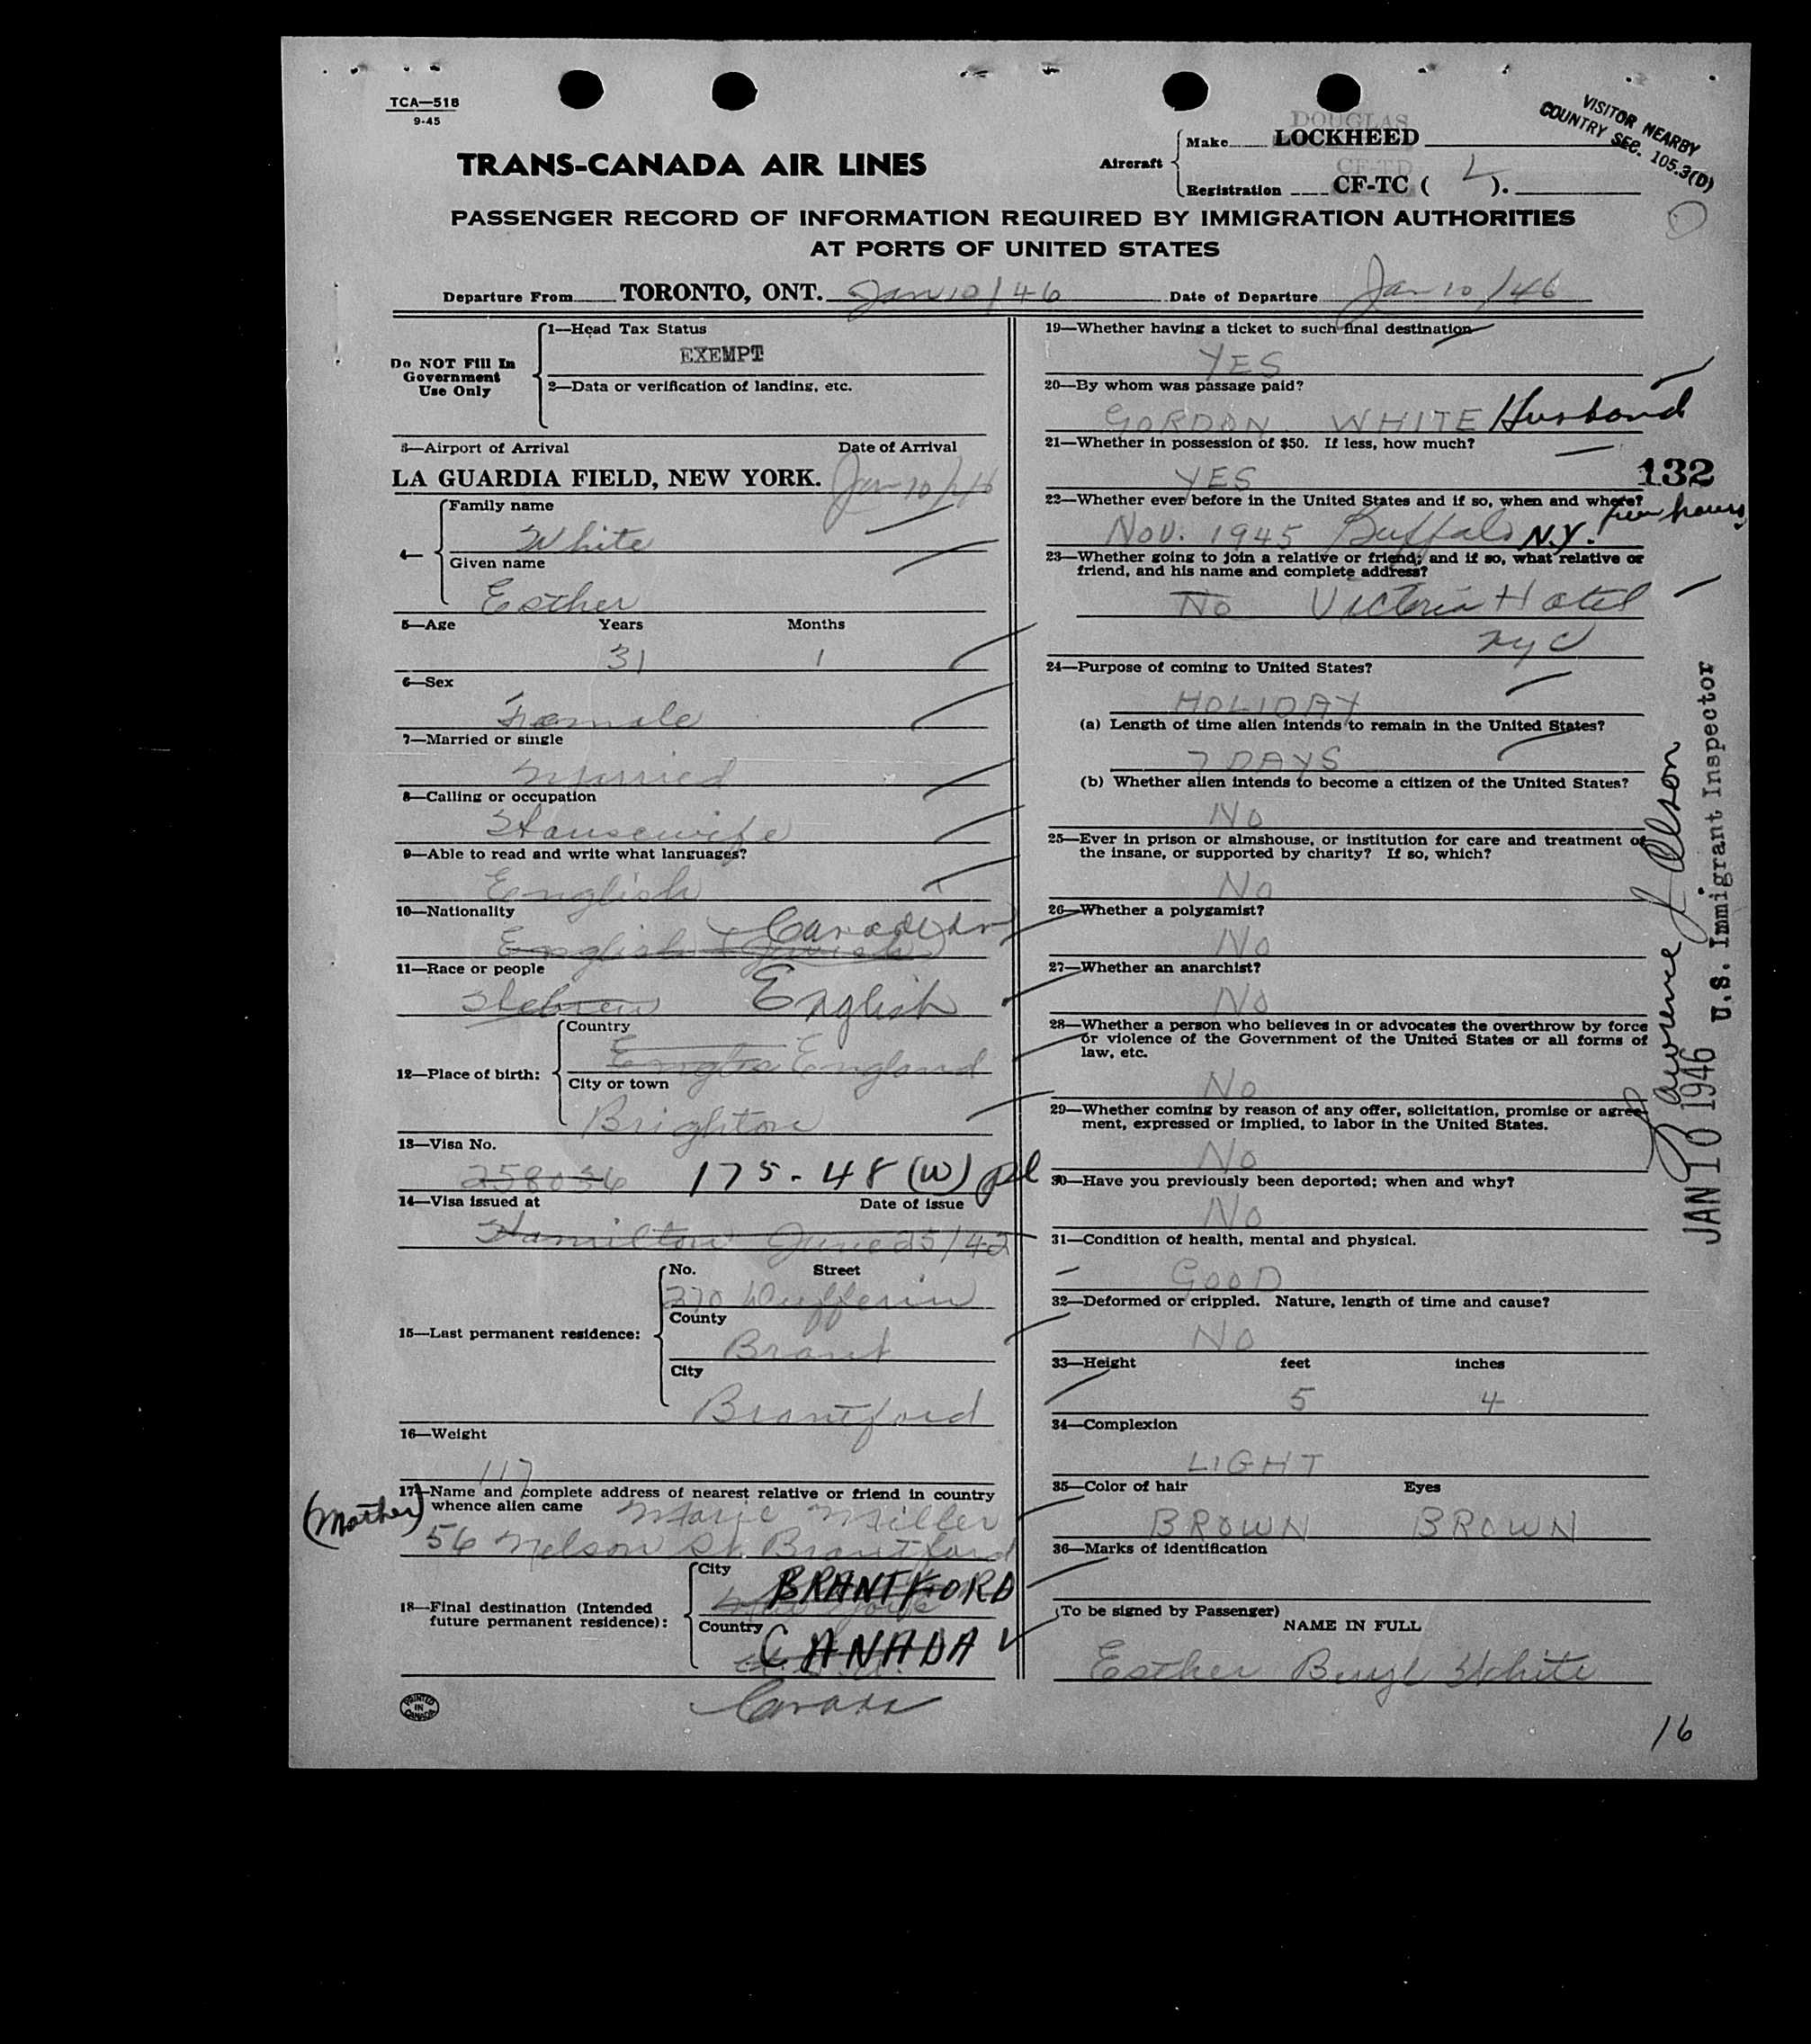 TCA—518
9-45
VISITOR NEARBY
COUNTRY SEC. 105.3(D)
DOUGLAS
Aircraft
Make LOCKHEED
CF-TD
Registration CF-TC ( L ).
TRANS-CANADA AIR LINES
PASSENGER RECORD OF INFORMATION REQUIRED BY IMMIGRATION AUTHORITIES
AT PORTS OF UNITED STATES
Departure From TORONTO, ONT. Jan 10/46 Date of Departure Jan 10/46
Do NOT Fill In
Government
Use Only
1—Head Tax Status
EXEMPT
2—Data or verification of landing, etc.
3—Airport of Arrival Date of Arrival
LA GUARDIA FIELD, NEW YORK. Jan 10/46
4—
Family name
White
Given name
Esther
5—Age Years Months
31 1
6—Sex
Female
7—Married or single
Married
8—Calling or occupation
Housewife
9—Able to read and write what languages?
English
10—Nationality
Canadian
English (Jewish)
11—Race or people
Hebrew English
12—Place of birth:
Country
England
City or town
Brighton
13—Visa No.
258036 175-48 (W)
14—Visa issued at Date of issue
Hamilton June 25/42
15—Last permanent residence:
No. Street
270 Dufferin
County
Brant
City
Brantford
16—Weight
117
17—Name and complete address of nearest relative or friend in country
whence alien came Marie Miller
(Mother)
56 Nelson St. Brantford
18—Final destination (Intended
future permanent residence):
City
BRANTFORD
New York
Country
CANADA
Canada
PRINTED
IN
CANADA
19—Whether having a ticket to such final destination
YES
20—By whom was passage paid?
GORDON WHITE Husband
21—Whether in possession of $50. If less, how much?
YES
132
22—Whether ever before in the United States and if so, when and where?
Nov. 1945 Buffalo N.Y. few hours
23—Whether going to join a relative or friend; and if so, what relative or
friend, and his name and complete address?
No Victoria Hotel
NYC
24—Purpose of coming to United States?
HOLIDAY
(a) Length of time alien intends to remain in the United States?
7 DAYS
(b) Whether alien intends to become a citizen of the United States?
No
25—Ever in prison or almshouse, or institution for care and treatment of
the insane, or supported by charity? If so, which?
No
26—Whether a polygamist?
No
27—Whether an anarchist?
No
28—Whether a person who believes in or advocates the overthrow by force
or violence of the Government of the United States or all forms of
law, etc.
No
29—Whether coming by reason of any offer, solicitation, promise or agree-
ment, expressed or implied, to labor in the United States.
No
30—Have you previously been deported; when and why?
No
31—Condition of health, mental and physical.
GOOD
32—Deformed or crippled. Nature, length of time and cause?
No
33—Height feet inches
5 4
34—Complexion
LIGHT
35—Color of hair Eyes
BROWN BROWN
36—Marks of identification
(To be signed by Passenger)
NAME IN FULL
Esther Beryl White
16
Lawrence J Olson
U.S. Immigrant Inspector
JAN 10 1946